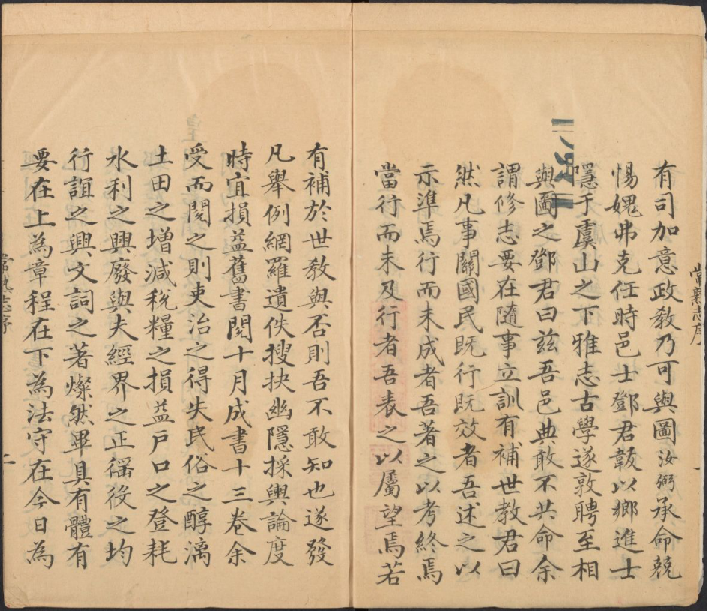 有司加意政敎乃可與圖汝弼承命兢
惕媿弗克任時邑士鄧君韍以鄉進士
隱于虞山之下雅志古學遂敦聘至相
與圖之鄧君曰兹吾邑典敢不共命余
謂修志要在隨事立訓有補世教君曰
然凡事關國民既行既效者吾述之以
示準焉行而未成者吾著之以考終焉
當行而未及行者吾表之以屬望焉若
有補於世敎與否則吾不敢知也遂發
凡舉例網羅遺佚搜抉幽隱採輿論度
時宜損益舊書閱十月成書十三卷余
受而閱之則吏治之得失民俗之醇漓
土田之增減稅糧之損益戶口之登耗
水利之興廢與夫經界之正徭役之均
行誼之興文詞之著燦然畢具有體有
要在上為章程在下為法守在今日為
常熟志序